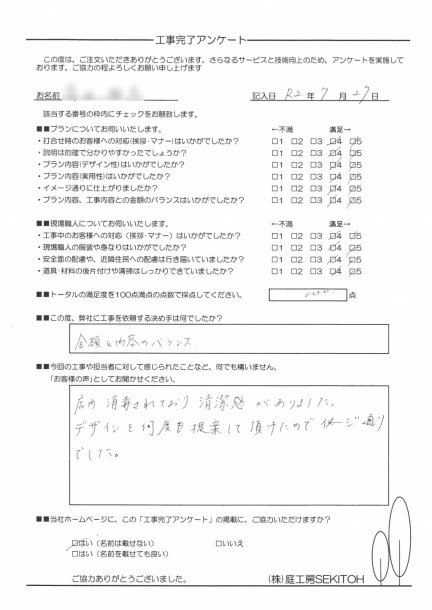 工事完了アンケート
この度は、ご注文いただきありがとうございます。さらなるサービスと技術向上のため、アンケートを実施して
おります。ご協力の程よろしくお願い申し上げます
お名前 記入日 R2 年 7 月 29 日
該当する番号の枠内にチェックをお願致します。
■■プランについてお伺いいたします。 ←不満 満足→
・打合せ時のお客様への対応(挨拶・マナー)はいかがでしたか? □1 □2 □3 □4 □5
・説明は的確で分かりやすかったでしょうか? □1 □2 □3 □4 □5
・プラン内容(デザイン性)はいかがでしたか? □1 □2 □3 □4 □5
・プラン内容(実用性)はいかがでしたか? □1 □2 □3 □4 □5
・イメージ通りに仕上がりましたか? □1 □2 □3 □4 □5
・プラン内容、工事内容との金額のバランスはいかがでしたか? □1 □2 □3 □4 □5
■■現場職人についてお伺いいたします。 ←不満 満足→
・工事中のお客様への対応(挨拶・マナー)はいかがでしたか? □1 □2 □3 □4 □5
・現場職人の服装や身なりはいかがでしたか? □1 □2 □3 □4 □5
・安全面の配慮や、近隣住民への配慮は行き届いていましたか? □1 □2 □3 □4 □5
・道具・材料の後片付けや清掃はしっかりできていましたか? □1 □2 □3 □4 □5
■■トータルの満足度を100点満点の点数で採点してください。 100 点
■■この度、弊社に工事を依頼する決め手は何でしたか?
金額と内容のバランス.
■■今回の工事や担当者に対して感じられたことなど、何でも構いません。
「お客様の声」としてお聞かせください。
店内 消毒されており 清潔感 がありました。
デザインを何度も提案して頂けたのでイメージ通り
でした。
■■当社ホームページに、この「工事完了アンケート」の掲載に、ご協力いただけますか?
□はい(名前は載せない) □いいえ
□はい(名前を載せても良い)
ご協力ありがとうございました。 (株)庭工房SEKITOH